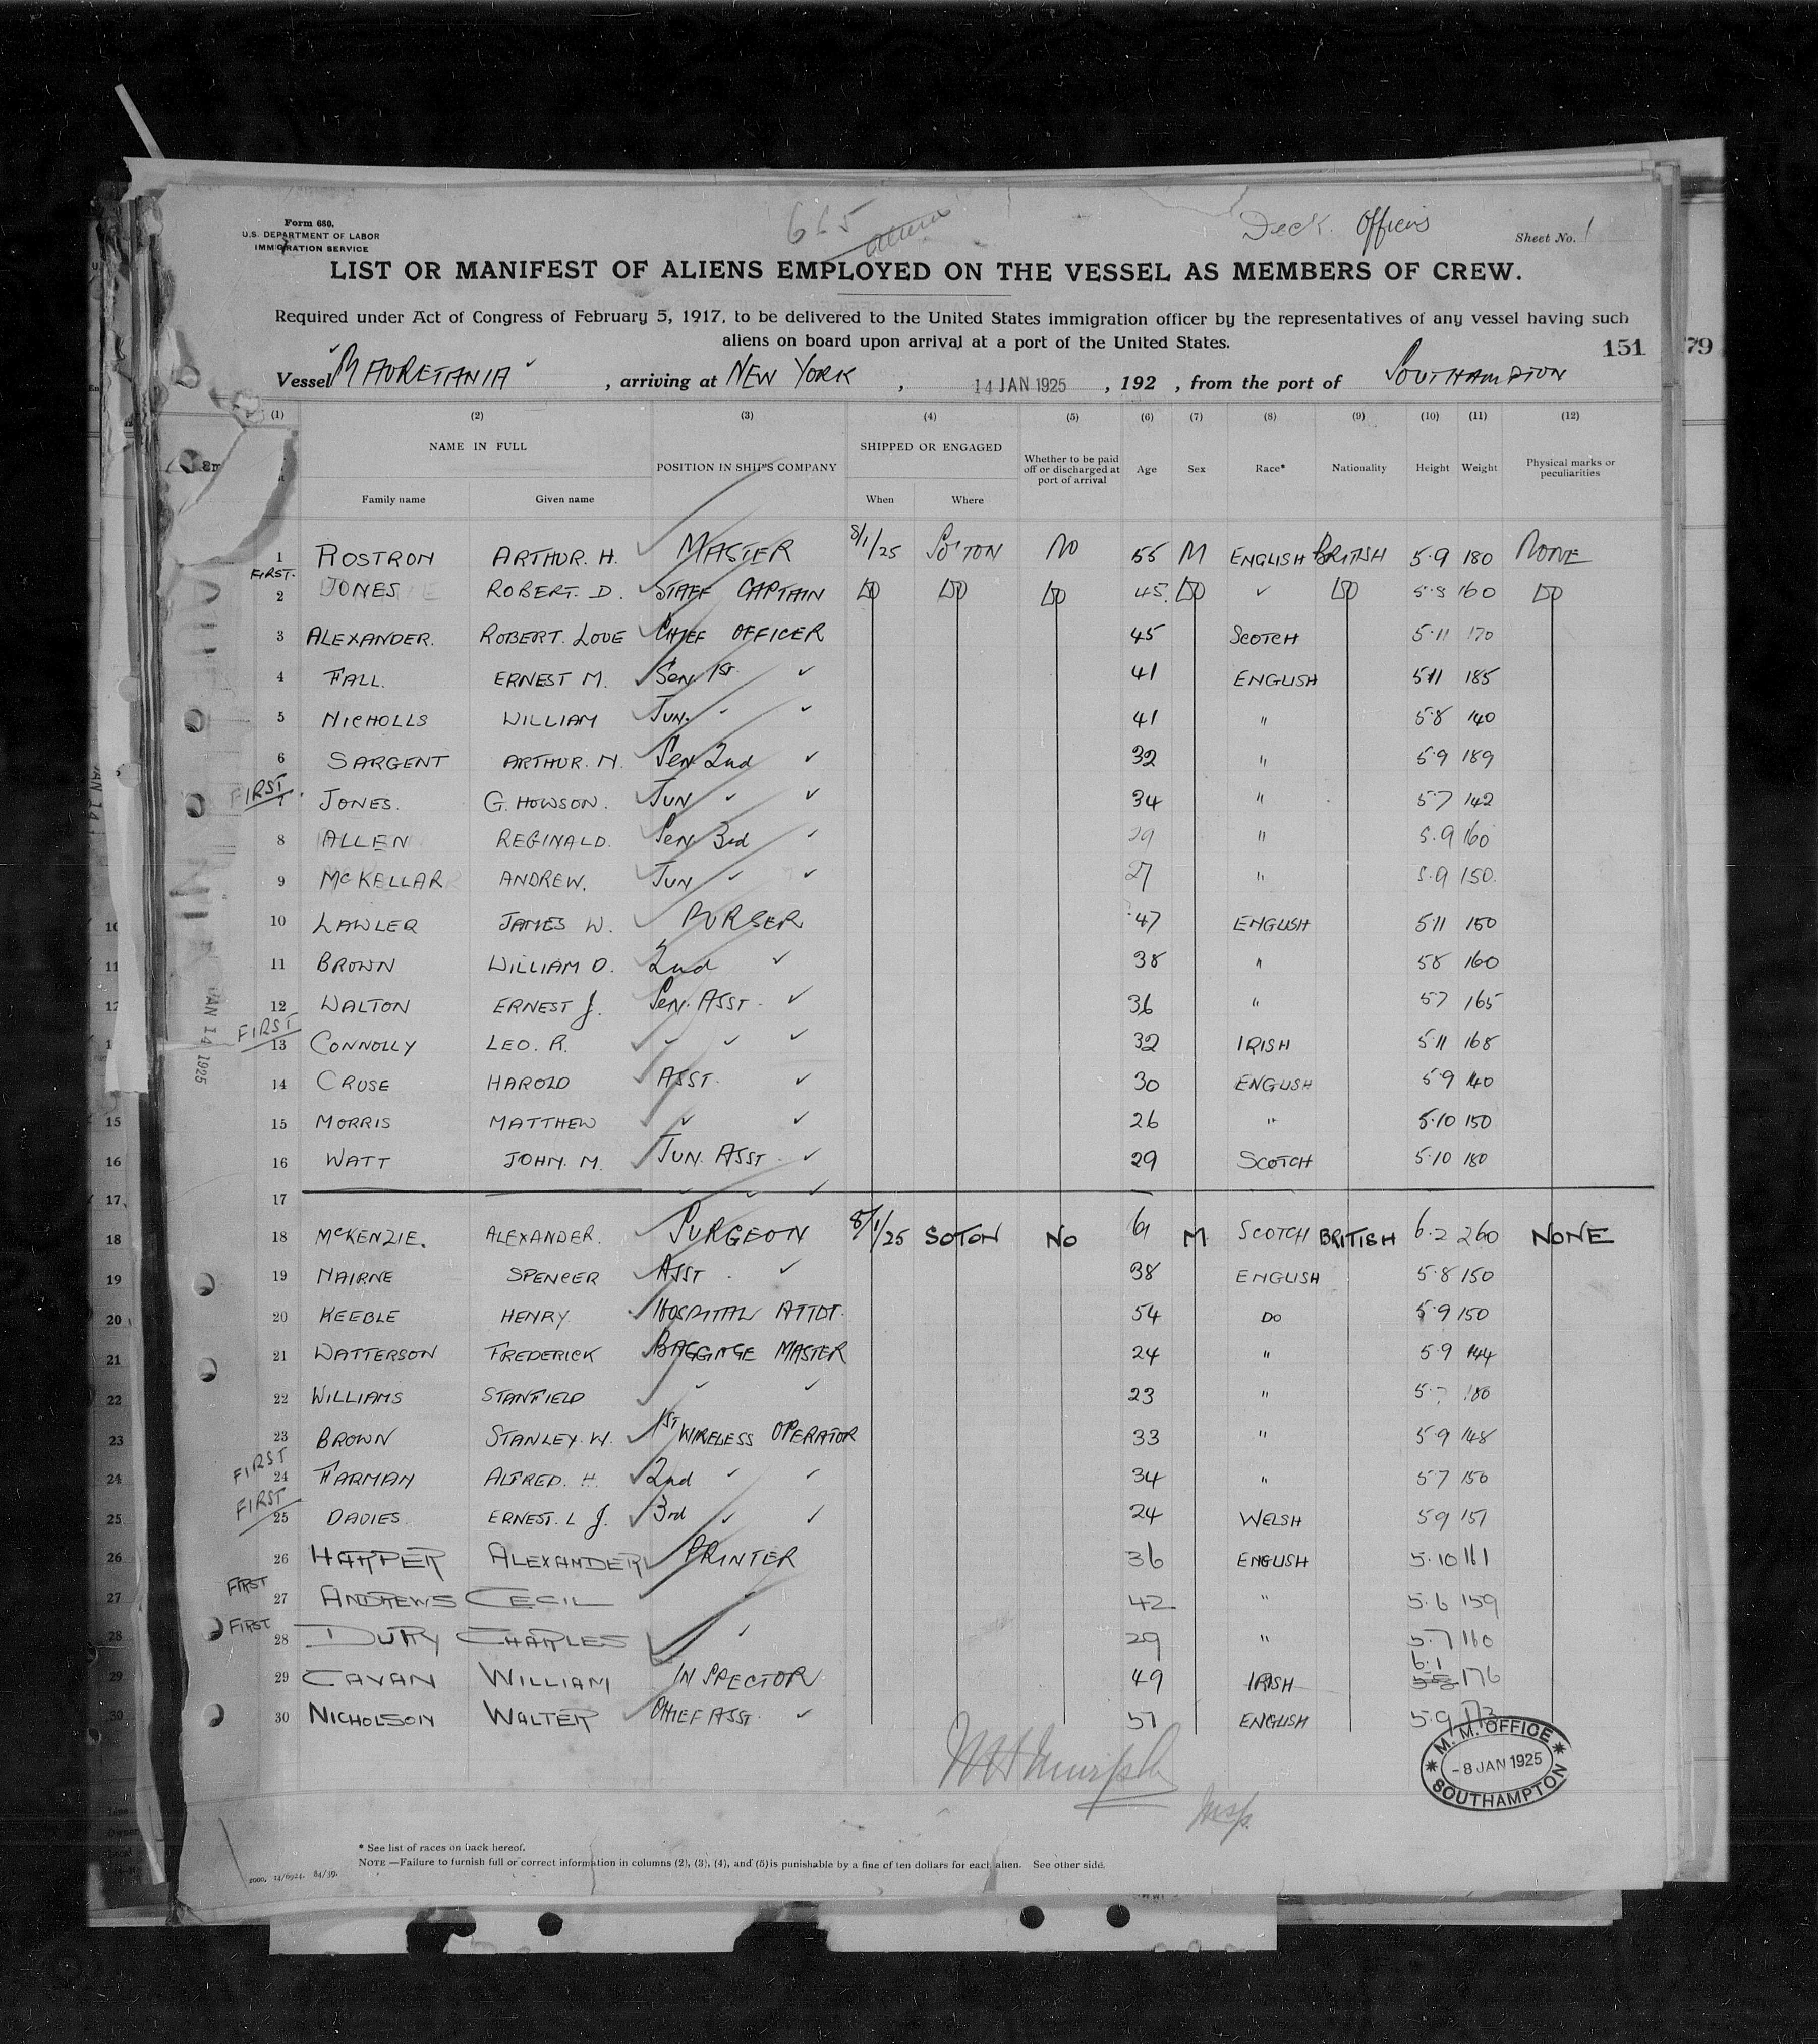 Form 680.
U.S. DEPARTMENT OF LABOR
IMMIGRATION SERVICE
665
Deck Officers
Sheet No. 1
LIST OR MANIFEST OF ALIENS EMPLOYED ON THE VESSEL AS MEMBERS OF CREW.
Required under Act of Congress of February 5, 1917, to be delivered to the United States immigration officer by the representatives of any vessel having such
aliens on board upon arrival at a port of the United States.
151 79
Vessel MAURETANIA, arriving at NEW YORK, 14 JAN 1925, 192 , from the port of SOUTHAMPTON
(1) (2) (3) (4) (5) (6) (7) (8) (9) (10) (11) (12)
NAME IN FULL POSITION IN SHIP'S COMPANY SHIPPED OR ENGAGED Whether to be paid off or discharged at port of arrival Age Sex Race* Nationality Height Weight Physical marks or peculiarities
Family name Given name When Where
1 ROSTRON ARTHUR. H. MASTER 8/1/25 SO'TON NO 55 M ENGLISH BRITISH 5·9 180 NONE
FIRST. 2 JONES ROBERT. D. STAFF CAPTAIN DO DO DO 45. DO ✓ DO 160 DO
3 ALEXANDER. ROBERT. LOVE CHIEF OFFICER 45 SCOTCH 5·11 170
4 FALL. ERNEST M. SEN 1ST ✓ 41 ENGLISH 5·11 185
5 NICHOLLS WILLIAM JUN. " ✓ 41 " 5·8 140
6 SARGENT ARTHUR. N. SEN 2nd ✓ 32 " 5·9 189
FIRST. 7 JONES. G. HOWSON. JUN ✓ ✓ 34 " 5·7 142
8 ALLEN REGINALD. SEN. 3rd ✓ 29 " 5.9 160
9 McKELLAR ANDREW. JUN ✓ ✓ 27 " 5.9 150.
10 LAWLER JAMES W. PURSER 47 ENGLISH 5·11 150
11 BROWN WILLIAM O. 2nd ✓ 38 " 5·8 160
12 WALTON ERNEST J. SEN. ASST. ✓ 36 " 5·7 165
FIRST 13 CONNOLLY LEO. R. ✓ ✓ ✓ 32 IRISH 5·11 168
14 CRUSE HAROLD ASST. ✓ 30 ENGLISH 5·9 140
15 MORRIS MATTHEW ✓ ✓ 26 " 5·10 150
16 WATT JOHN. M. JUN. ASST. ✓ 29 SCOTCH 5·10 180
17 ✓ ✓ ✓
18 McKENZIE. ALEXANDER. SURGEON 8/1/25 SOTON NO 61 M SCOTCH BRITISH 6·2 260 NONE
19 NAIRNE SPENCER ASST. ✓ 38 ENGLISH 5·8 150
20 KEEBLE HENRY. HOSPITAL ATTDT. 54 DO 5·9 150
21 WATTERSON FREDERICK BAGGAGE MASTER 24 " 5·9 144
22 WILLIAMS STANFIELD ✓ ✓ 23 " 180
23 BROWN STANLEY. W. 1ST WIRELESS OPERATOR 33 " 5·9 148
FIRST 24 FARMAN ALFRED. H. 2nd ✓ ✓ 34 " 5·7 150
FIRST 25 DAVIES. ERNEST. L J. 3rd ✓ ✓ 24 WELSH 5·9 151
26 HARPER ALEXANDER PRINTER 36 ENGLISH 5·10 161
FIRST 27 ANDREWS CECIL ✓ 42 " 5.6 159
FIRST 28 CHARLES ✓ 29 " 5.7 160
29 CAVAN WILLIAM INSPECTOR 49 IRISH 6.1 176
30 NICHOLSON WALTER CHIEF ASST. ✓ 57 ENGLISH 5.9 173
JAN 14 1925
Insp.
M. M. OFFICE
-8 JAN 1925
SOUTHAMPTON
* See list of races on back hereof.
NOTE—Failure to furnish full or correct information in columns (2), (3), (4), and (5) is punishable by a fine of ten dollars for each alien. See other side.
2000. 14/6924. 84/39.